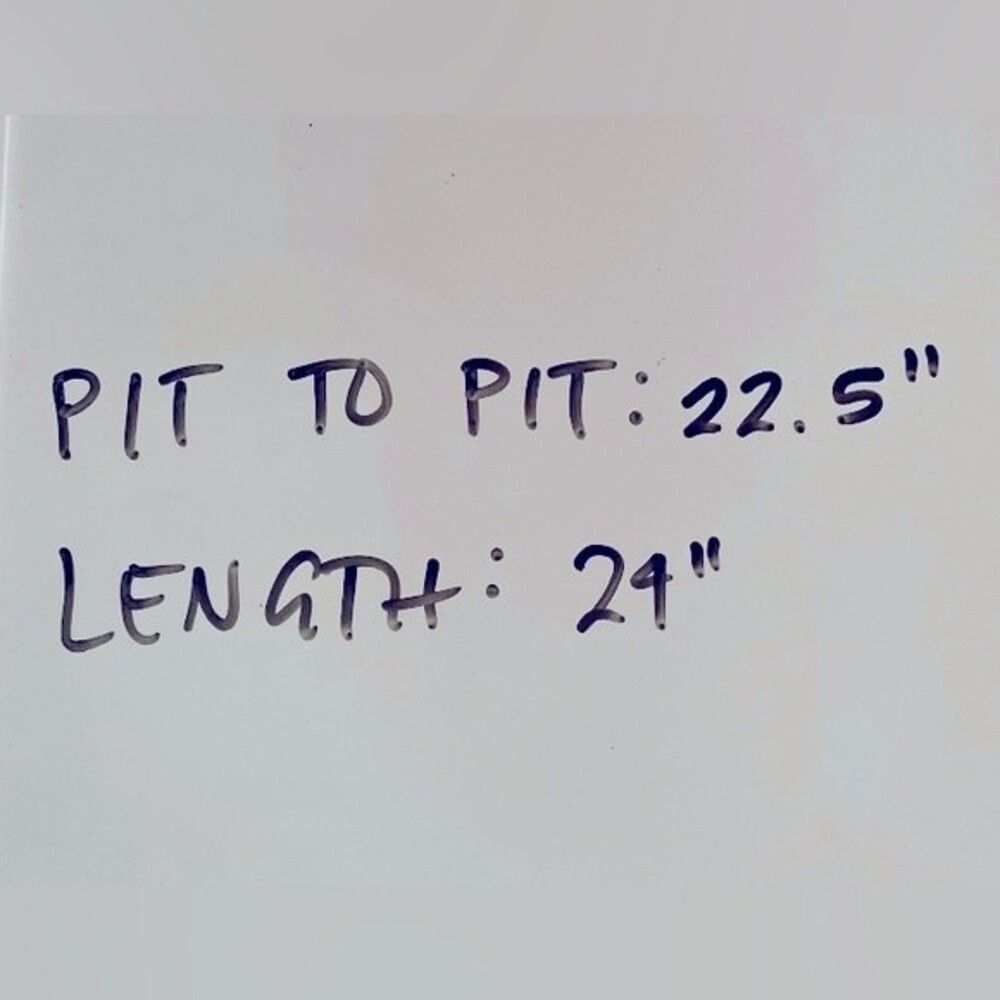 PIT TO PIT: 22.5"
LENGTH: 24"